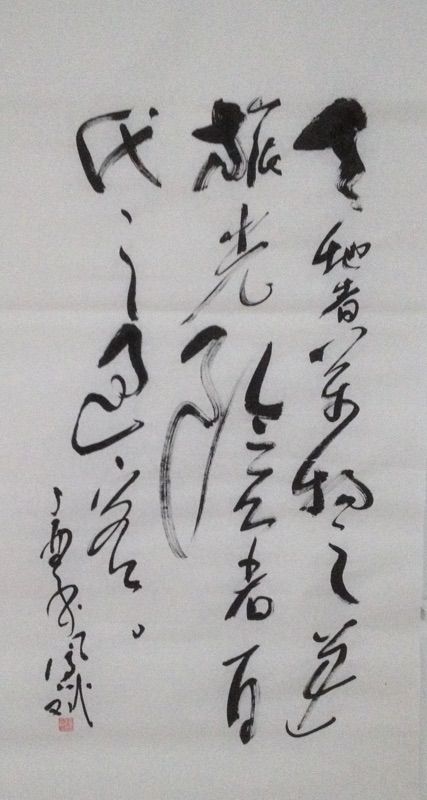 天地者萬物之逆
旅光陰者百
代之過客